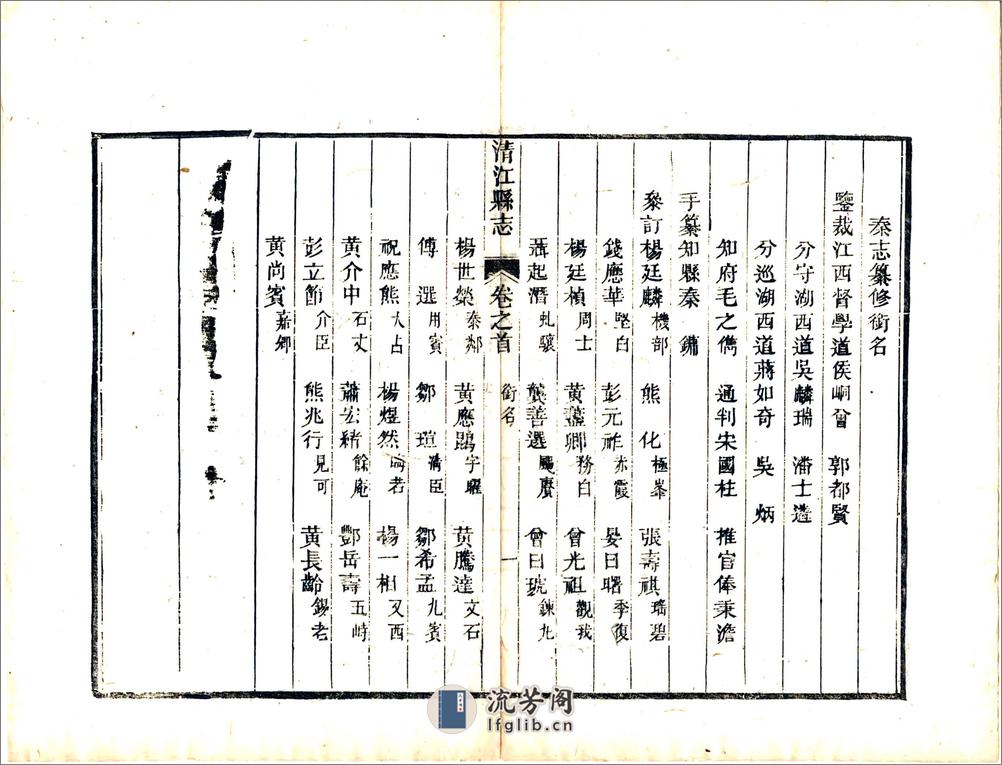 秦志纂修銜名
鑒裁江西督學道侯峒曾 郭都賢
分守湖西道吳麟瑞 潘士遴
分巡湖西道蔣如奇 吳 炳
知府毛之儁 通判宋國柱 推官俸秉澹
手纂知縣秦 鏞
參訂楊廷麟機部 熊 化極峯 張壽祺瑤碧
錢應華堅白 彭元祚赤霞 晏日曙季復
楊廷楨周士 黃藎卿務白 曾光祖觀我
聶起潛虬驤 龔善選颺賡 曾曰琥鍊九
清江縣志 卷之首 銜名 一
楊世榮泰鄰 黃應鵾宇曜 黃騰達文石
傅 選用賓 鄒 瑄淸臣 鄒希孟九賓
祝應熊大占 楊煜然 楊一相又西
黃介中石丈 蕭宏緒餘庵 酆岳壽五峙
彭立節介臣 熊兆行見可 黃長齡錫老
黃尚賓嘉卿
流芳阁
lfglib.cn